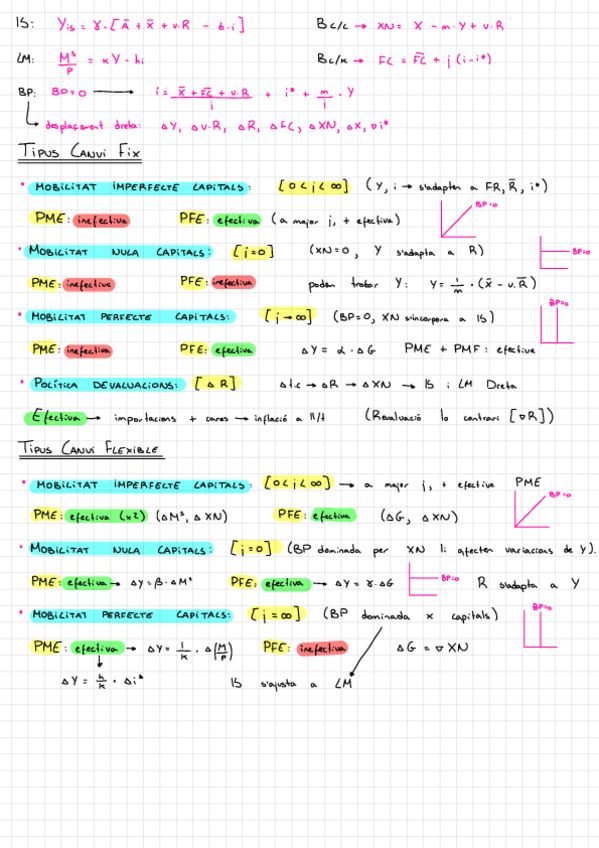 IS: Y_IS = γ · [Ā + X̄ + v·R - b·i]
Bc/c → XN = X - m·Y + v·R
LM: M^s/P = kY - hi
Bc/k → FC = F̄C̄ + j (i - i*)
BP: BP=0 → i = X̄ + F̄C̄ + v·R / j + i* + m/j · Y
desplaçament dreta: ΔY, Δv·R, ΔR, ΔFC, ΔXN, ΔX, ∇i*
TIPUS CANVI FIX
• MOBILITAT IMPERFECTE CAPITALS: [0<j<∞] (Y, i → s'adapten a FR, R̄, i*)
PME: inefectiva PFE: efectiva (a major j, + efectiva)
BP=0
• MOBILITAT NULA CAPITALS: [j=0] (XN=0, Y s'adapta a R)
BP=0
PME: inefectiva PFE: inefectiva poden trobar Y: Y = 1/m · (x̄ - v·R̄)
• MOBILITAT PERFECTE CAPITALS: [j→∞] (BP=0, XN s'incorpora a IS)
BP=0
PME: inefectiva PFE: efectiva ΔY = α·ΔG PME + PMF: efectiva
• POLÍTICA DEVALUACIONS: [ΔR] Δt.c → ΔR → ΔXN → IS i LM Dreta
Efectiva → importacions + cares → inflació a ll/t (Revaluació lo contrari [∇R])
TIPUS CANVI FLEXIBLE
• MOBILITAT IMPERFECTE CAPITALS: [0<j<∞] → a major j, + efectiva PME
BP=0
PME: efectiva (x2) (ΔM^s, ΔXN) PFE: efectiva (ΔG, ΔXN)
• MOBILITAT NULA CAPITALS: [j=0] (BP dominada per XN li afecten variacions de Y).
PME: efectiva → ΔY=β·ΔM^s PFE: efectiva → ΔY = γ·ΔG BP=0 R s'adapta a Y
• MOBILITAT PERFECTE CAPITALS: [j=∞] (BP dominada x capitals)
BP=0
PME: efectiva → ΔY = 1/k · Δ(M/P) PFE: inefectiva ΔG = ∇XN
ΔY = h/k · Δi* IS s'ajusta a LM